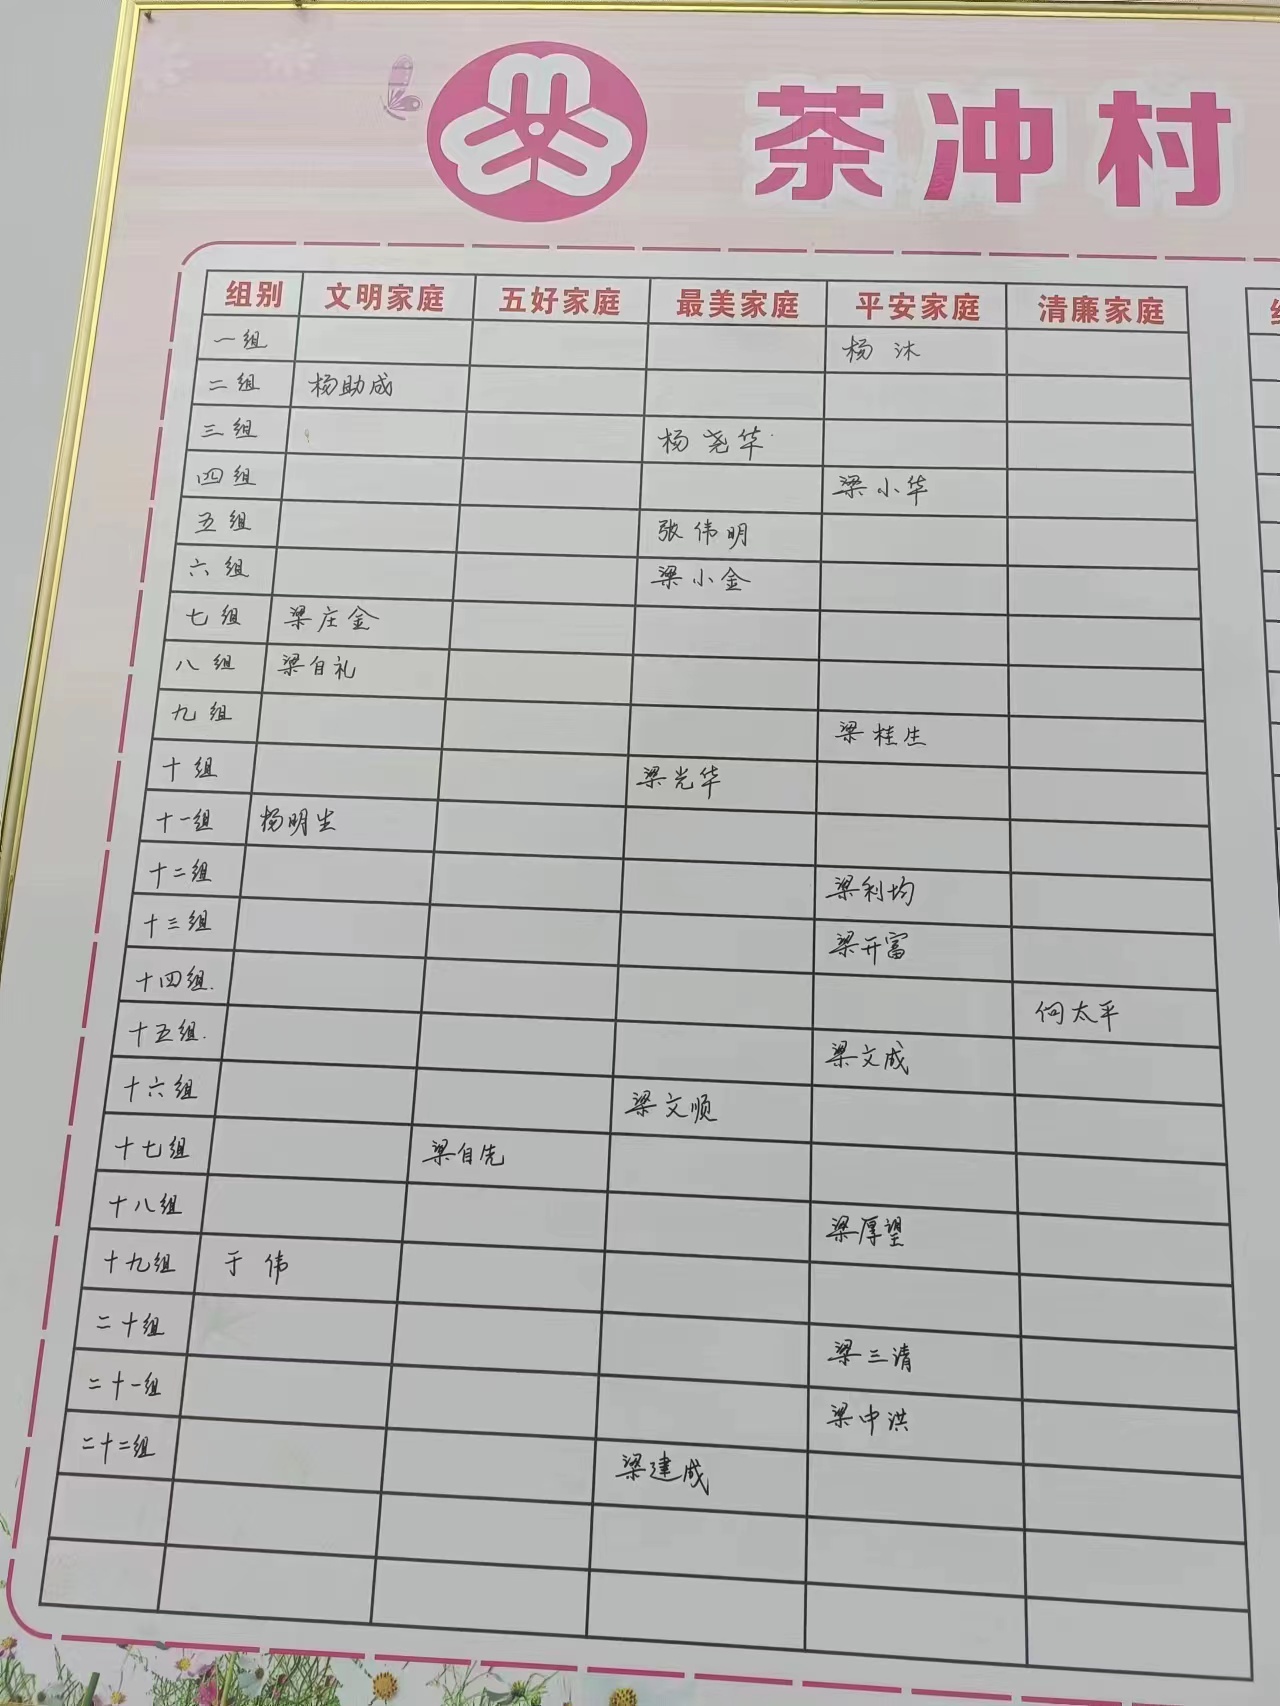 茶冲村
组别 文明家庭 五好家庭 最美家庭 平安家庭 清廉家庭
一组 杨沐
二组 杨助成
三组 杨尧华
四组 梁小华
五组 张伟明
六组 梁小金
七组 梁庄金
八组 梁自礼
九组 梁桂生
十组 梁光华
十一组 杨明生
十二组 梁利均
十三组 梁开富
十四组. 何太平
十五组. 梁文成
十六组 梁文顺
十七组 梁自先
十八组 梁厚望
十九组 于伟
二十组 梁三清
二十一组 梁中洪
二十二组 梁建成